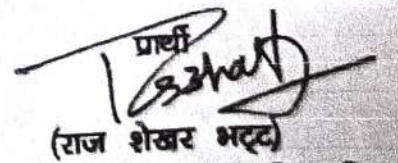 प्रार्थी
(राज शेखर भट्ट)